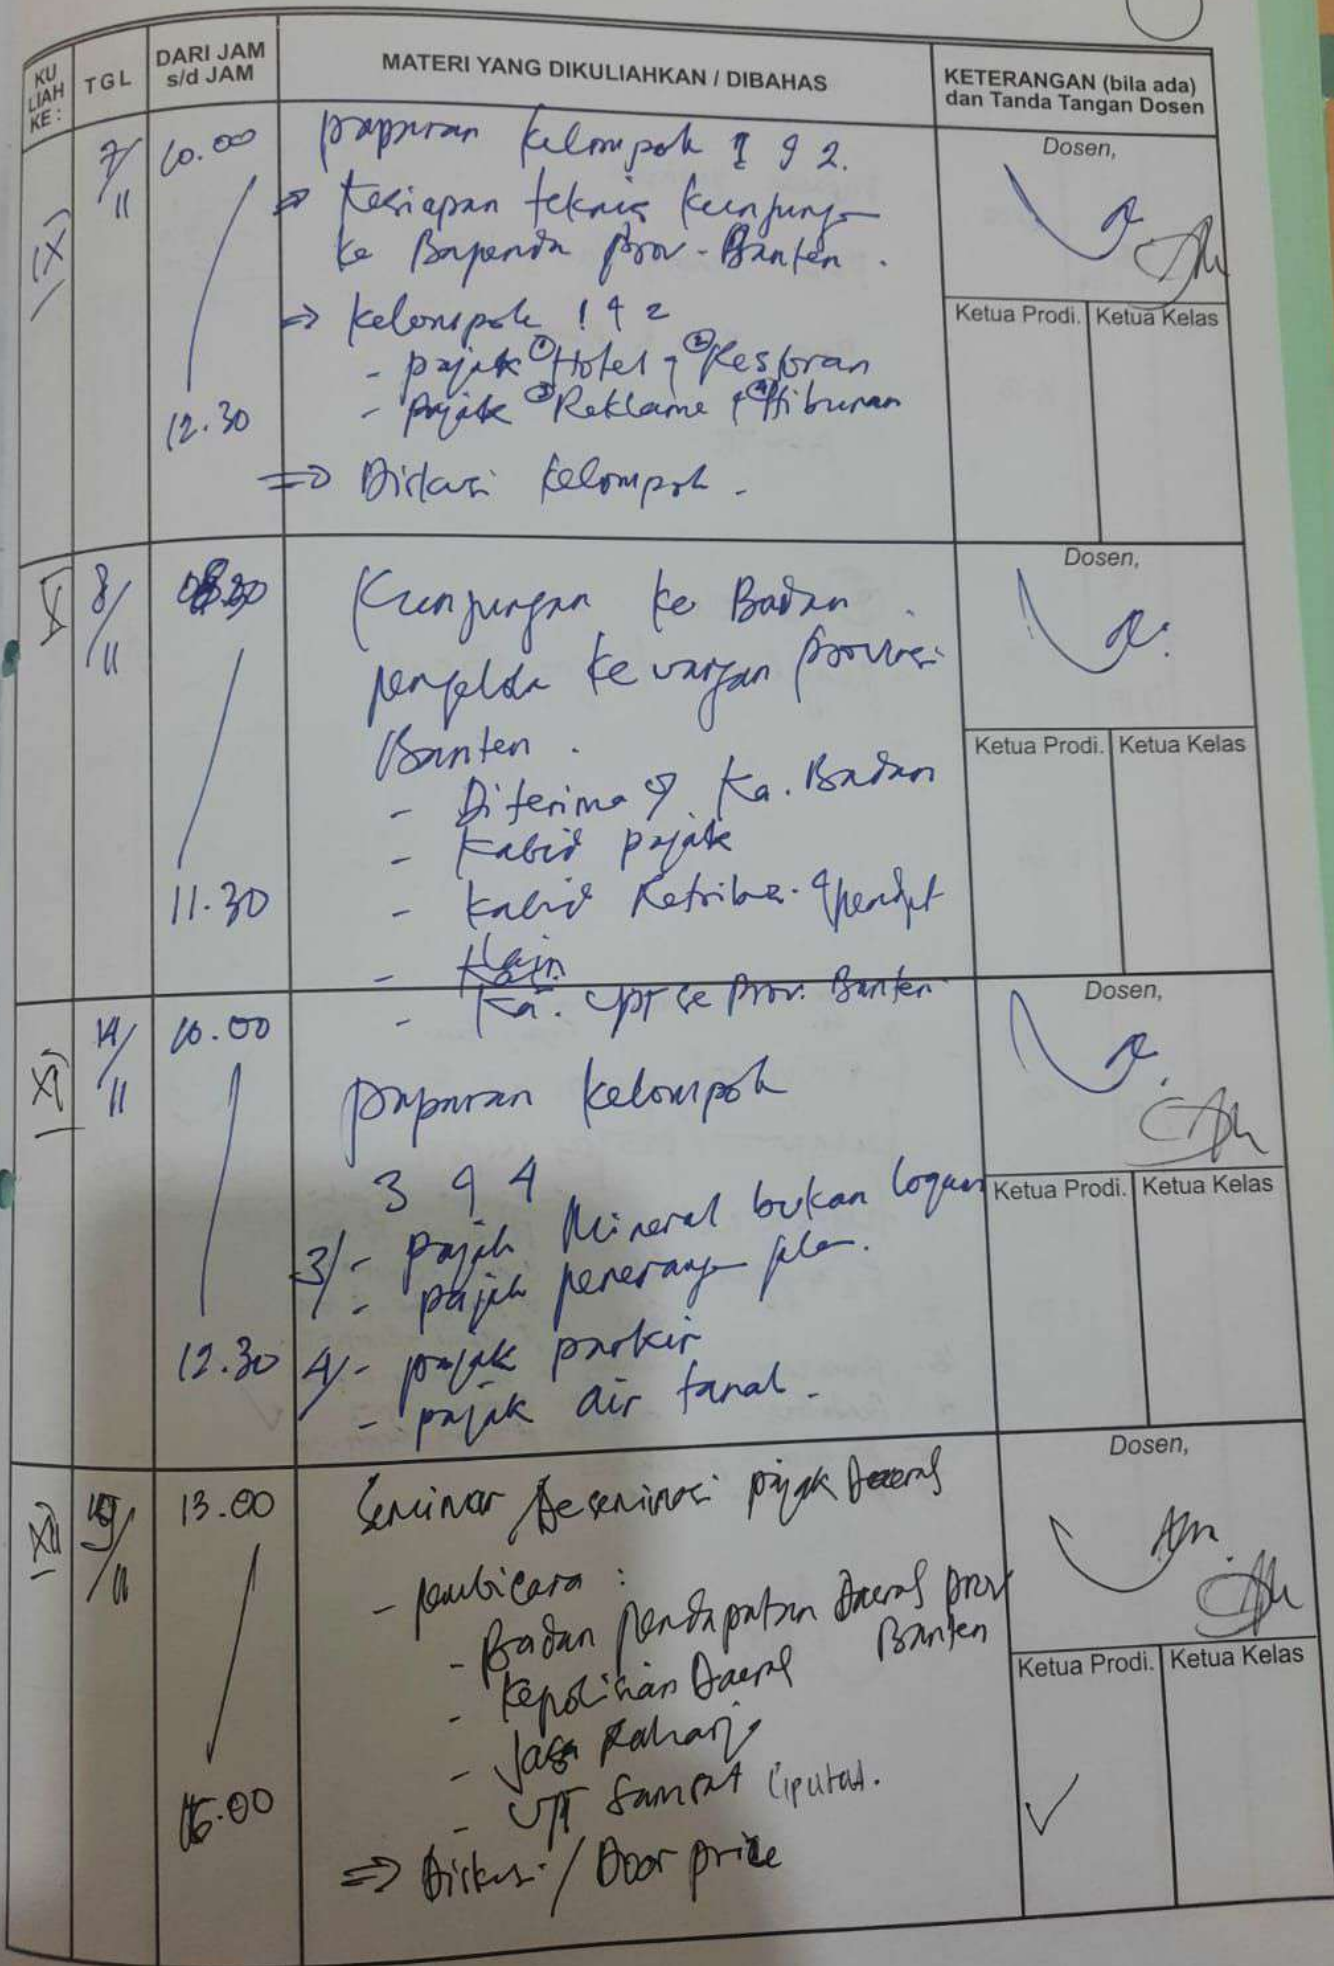 KU LIAH KE :
TGL
DARI JAM s/d JAM
MATERI YANG DIKULIAHKAN / DIBAHAS
KETERANGAN (bila ada) dan Tanda Tangan Dosen
IX
7/11
10.00
12.30
paparan kelompok 1 & 2.
=> Kesiapan teknis kunjungan
ke Bapenda Prov - Banten .
=> kelompok 1 & 2
- pajak ① Hotel & ② Restoran
- pajak ③ Reklame & ④ Hiburan
=> Diskusi kelompok -
Dosen,
Ketua Prodi.
Ketua Kelas
X
8/11
11.30
Kunjungan ke Badan
pengelola keuangan provinsi
Banten .
- Diterima Ka. Badan
- Kabid pajak
- Kabid Retribusi & pendpt
lain
- Ka. UPT se Prov. Banten
Dosen,
Ketua Prodi.
Ketua Kelas
XI
14/11
10.00
12.30
paparan kelompok
3 & 4
3/- pajak Mineral bukan logam
- pajak penerangan jalan.
4/- pajak parkir
- pajak air tanah -
Dosen,
Ketua Prodi.
Ketua Kelas
XII
13.00
Seminar Deseminasi pajak Daerah
- pembicara :
- Badan pendapatan Daerah prov
Banten
- Kepolisian Daerah
- Jasa Raharja
- UPT Samsat Ciputat.
=> Diskusi / Door price
Dosen,
Ketua Prodi.
Ketua Kelas